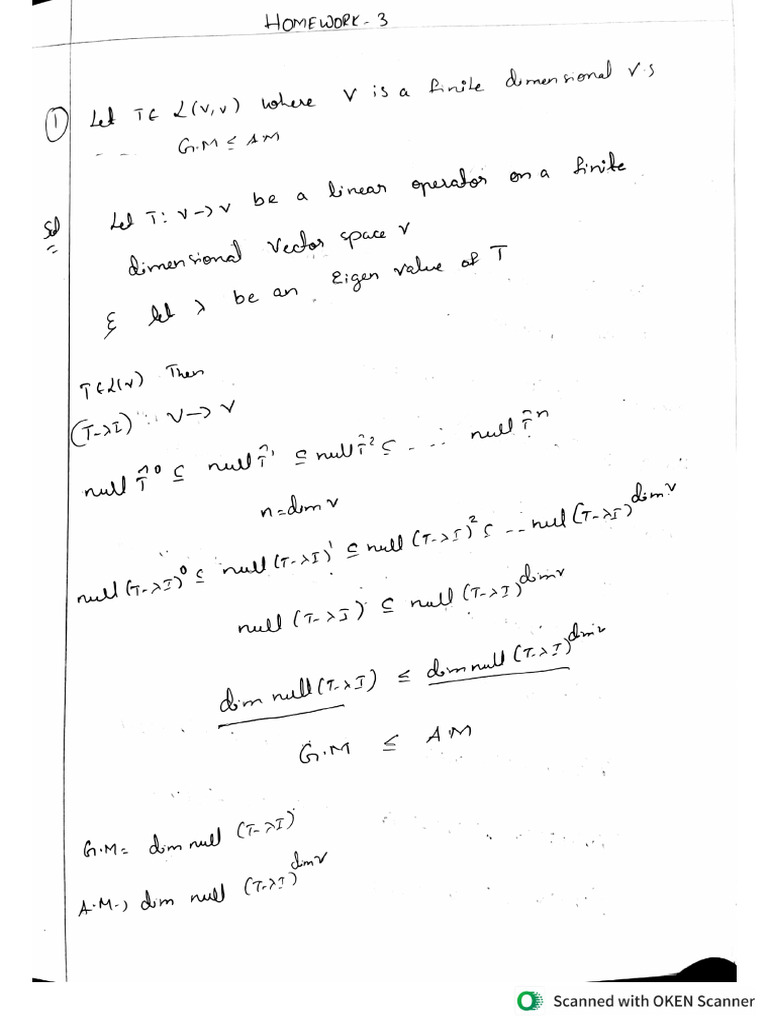 HOMEWORK - 3
① Let T ∈ L(V,V) where V is a finite dimensional V.S
G.M ≤ A.M
Sol Let T: V → V be a linear operator on a finite
dimensional vector space V
& let λ be an Eigen value of T
T ∈ L(V) Then
(T-λI) : V → V
null T̂^0 ⊆ null T̂^1 ⊆ null T̂^2 ⊆ ... null T̂^n
n = dim V
null (T-λI)^0 ⊆ null (T-λI)^1 ⊆ null (T-λI)^2 ⊆ ... null (T-λI)^dim V
null (T-λI) ⊆ null (T-λI)^dim V
dim null (T-λI) ≤ dim null (T-λI)^dim V
G.M ≤ A.M
G.M = dim null (T-λI)
A.M → dim null (T-λI)^dim V
Scanned with OKEN Scanner